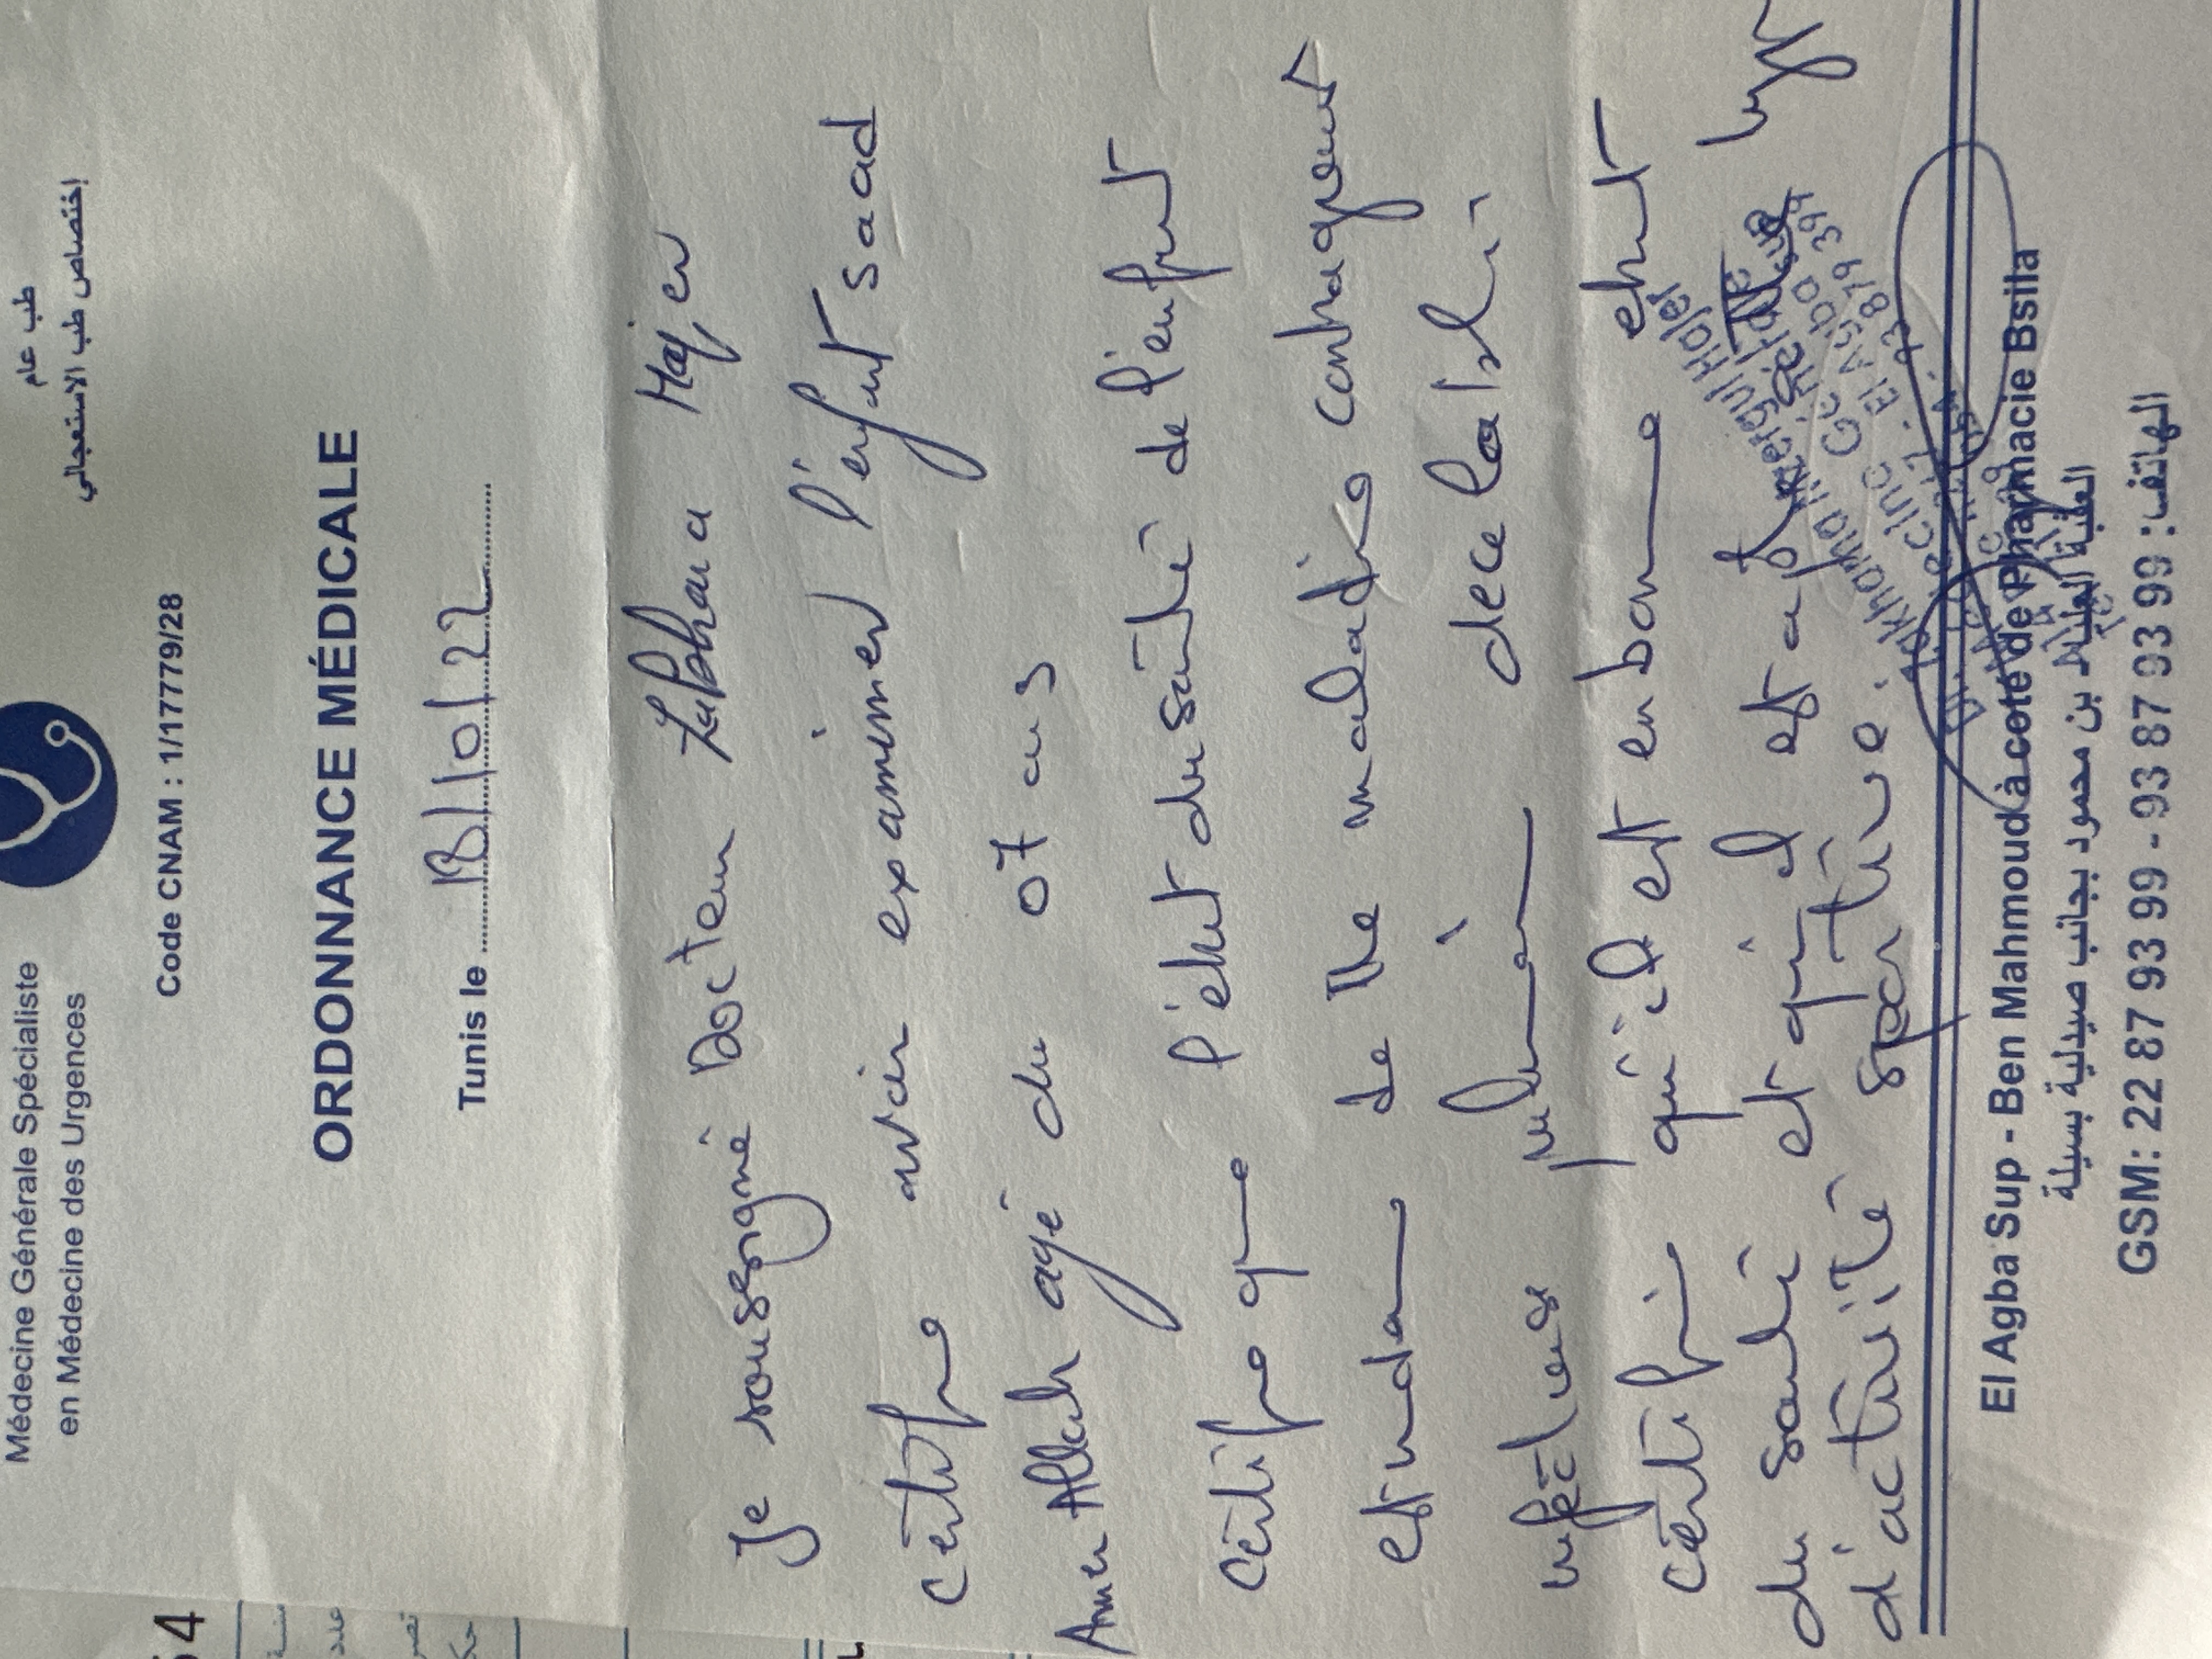 Médecine Générale Spécialiste
en Médecine des Urgences
طب عام
إختصاص طب الاستعجالي
Code CNAM : 1/17779/28
ORDONNANCE MÉDICALE
Tunis le
Je soussigné Docteur Hajer
certifie avoir examiner l'enfant saad
Amen Allah agé du 07 ans
Certifie que l'état du santé de l'enfant
et indemne de tte maladies contrageuse
infectieuse decelable
certifie qu'il est en bonne etat
du santé et qu'il est apte
d'activité sportive.
Hajer
El Agba Sup - Ben Mahmoud à coté de Pharmacie Bsila
العقبة العليا بن محمود بجانب صيدلية بسيلة
GSM: 22 87 93 99 - 93 87 93 99 :الهاتف
54